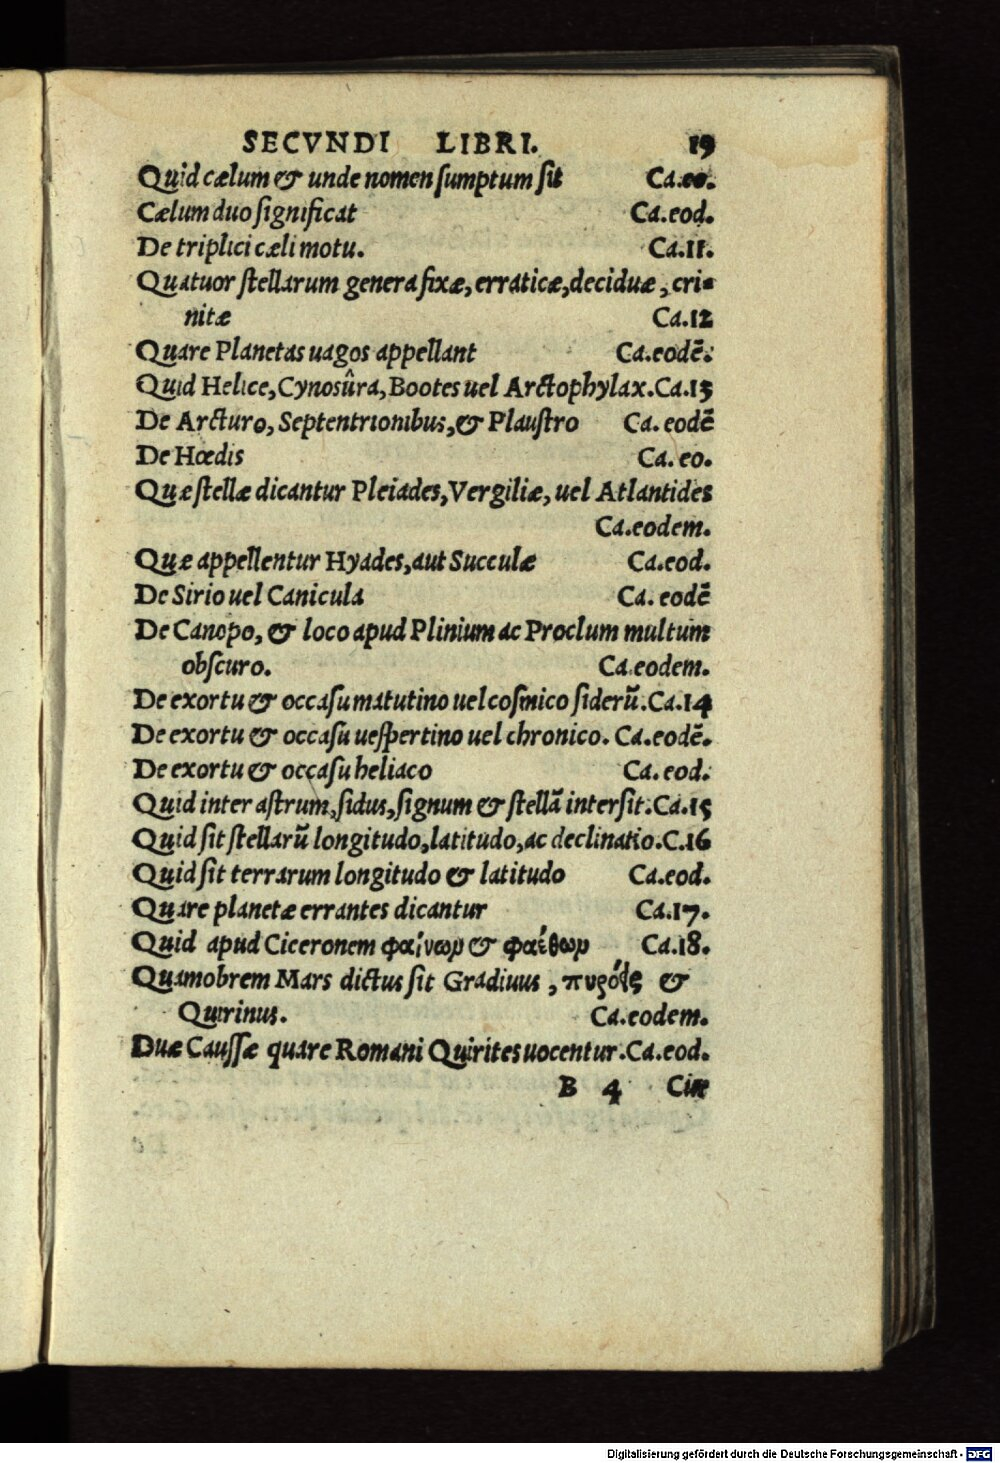 SECVNDI LIBRI. 19
Quid cælum & unde nomen sumptum sit Ca.eo.
Cælum duo significat Ca.eod.
De triplici cæli motu. Ca.11.
Quatuor stellarum genera fixæ, erraticæ, deciduæ, cri-
nitæ Ca.12
Quare Planetas uagos appellant Ca.eodē.
Quid Helice, Cynosûra, Bootes uel Arctophylax. Ca.13
De Arcturo, Septentrionibus, & Plaustro Ca. eodē
De Hœdis Ca. eo.
Quæ stellæ dicantur Pleiades, Vergiliæ, uel Atlantides
Ca.eodem.
Quæ appellentur Hyades, aut Succulæ Ca.eod.
De Sirio uel Canicula Ca. eodē
De Canopo, & loco apud Plinium ac Proclum multum
obscuro. Ca.eodem.
De exortu & occasu matutino uel cosmico siderū. Ca.14
De exortu & occasu uespertino uel chronico. Ca.eodē.
De exortu & occasu heliaco Ca. eod.
Quid inter astrum, sidus, signum & stellā intersit. Ca.15
Quid sit stellarū longitudo, latitudo, ac declinatio. C.16
Quid sit terrarum longitudo & latitudo Ca.eod.
Quare planetæ errantes dicantur Ca.17.
Quid apud Ciceronem φαίνωμ & φαέθωμ Ca.18.
Quamobrem Mars dictus sit Gradiuus, πυρόεις &
Quirinus. Ca.eodem.
Duæ Caussæ quare Romani Quirites uocentur. Ca.eod.
B 4 Cur
Digitalisierung gefördert durch die Deutsche Forschungsgemeinschaft - DFG